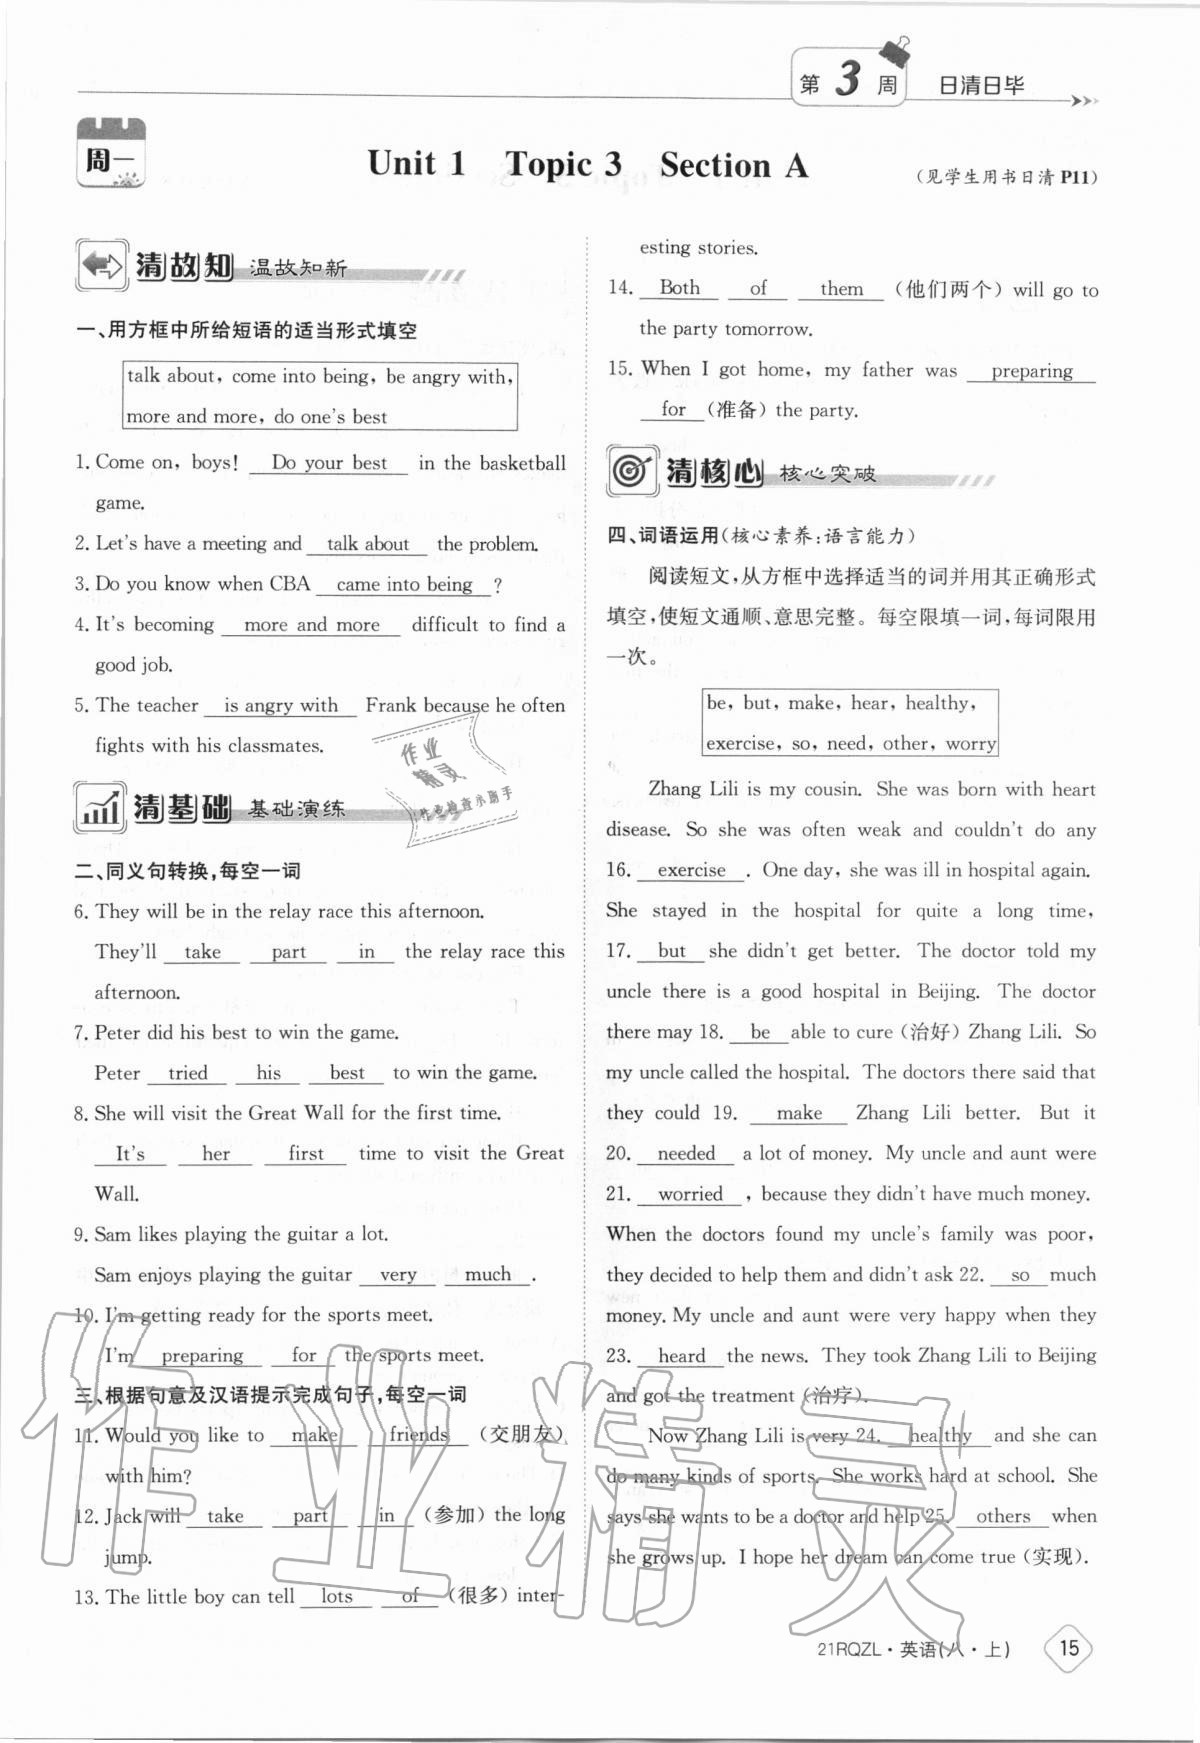 第 3 周 日清日毕
周一
Unit 1 Topic 3 Section A (见学生用书日清 P11)
清故知 温故知新
一、用方框中所给短语的适当形式填空
talk about, come into being, be angry with,
more and more, do one's best
1. Come on, boys! Do your best in the basketball
game.
2. Let's have a meeting and talk about the problem.
3. Do you know when CBA came into being ?
4. It's becoming more and more difficult to find a
good job.
5. The teacher is angry with Frank because he often
fights with his classmates.
清基础 基础演练
二、同义句转换,每空一词
6. They will be in the relay race this afternoon.
They'll take part in the relay race this
afternoon.
7. Peter did his best to win the game.
Peter tried his best to win the game.
8. She will visit the Great Wall for the first time.
It's her first time to visit the Great
Wall.
9. Sam likes playing the guitar a lot.
Sam enjoys playing the guitar very much .
10. I'm getting ready for the sports meet.
I'm preparing for the sports meet.
三、根据句意及汉语提示完成句子,每空一词
11. Would you like to make friends (交朋友)
with him?
12. Jack will take part in (参加) the long
jump.
13. The little boy can tell lots of (很多) inter-
esting stories.
14. Both of them (他们两个) will go to
the party tomorrow.
15. When I got home, my father was preparing
for (准备) the party.
清核心 核心突破
四、词语运用(核心素养:语言能力)
阅读短文,从方框中选择适当的词并用其正确形式
填空,使短文通顺、意思完整。每空限填一词,每词限用
一次。
be, but, make, hear, healthy,
exercise, so, need, other, worry
Zhang Lili is my cousin. She was born with heart
disease. So she was often weak and couldn't do any
16. exercise . One day, she was ill in hospital again.
She stayed in the hospital for quite a long time,
17. but she didn't get better. The doctor told my
uncle there is a good hospital in Beijing. The doctor
there may 18. be able to cure (治好) Zhang Lili. So
my uncle called the hospital. The doctors there said that
they could 19. make Zhang Lili better. But it
20. needed a lot of money. My uncle and aunt were
21. worried , because they didn't have much money.
When the doctors found my uncle's family was poor,
they decided to help them and didn't ask 22. so much
money. My uncle and aunt were very happy when they
23. heard the news. They took Zhang Lili to Beijing
and got the treatment (治疗).
Now Zhang Lili is very 24. healthy and she can
do many kinds of sports. She works hard at school. She
says she wants to be a doctor and help 25. others when
she grows up. I hope her dream can come true (实现).
作业
精灵
作业检查小助手
作业精灵
21RQZL·英语(八·上) 15